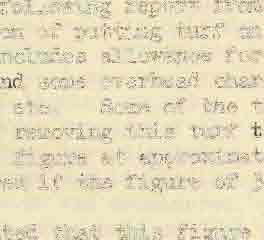 following report from
on of putting turf on
includes allowance for
nd some overhead char
etc. Some of the t
removing this turf t
figure at approximat
if the figure of
ted that this figure